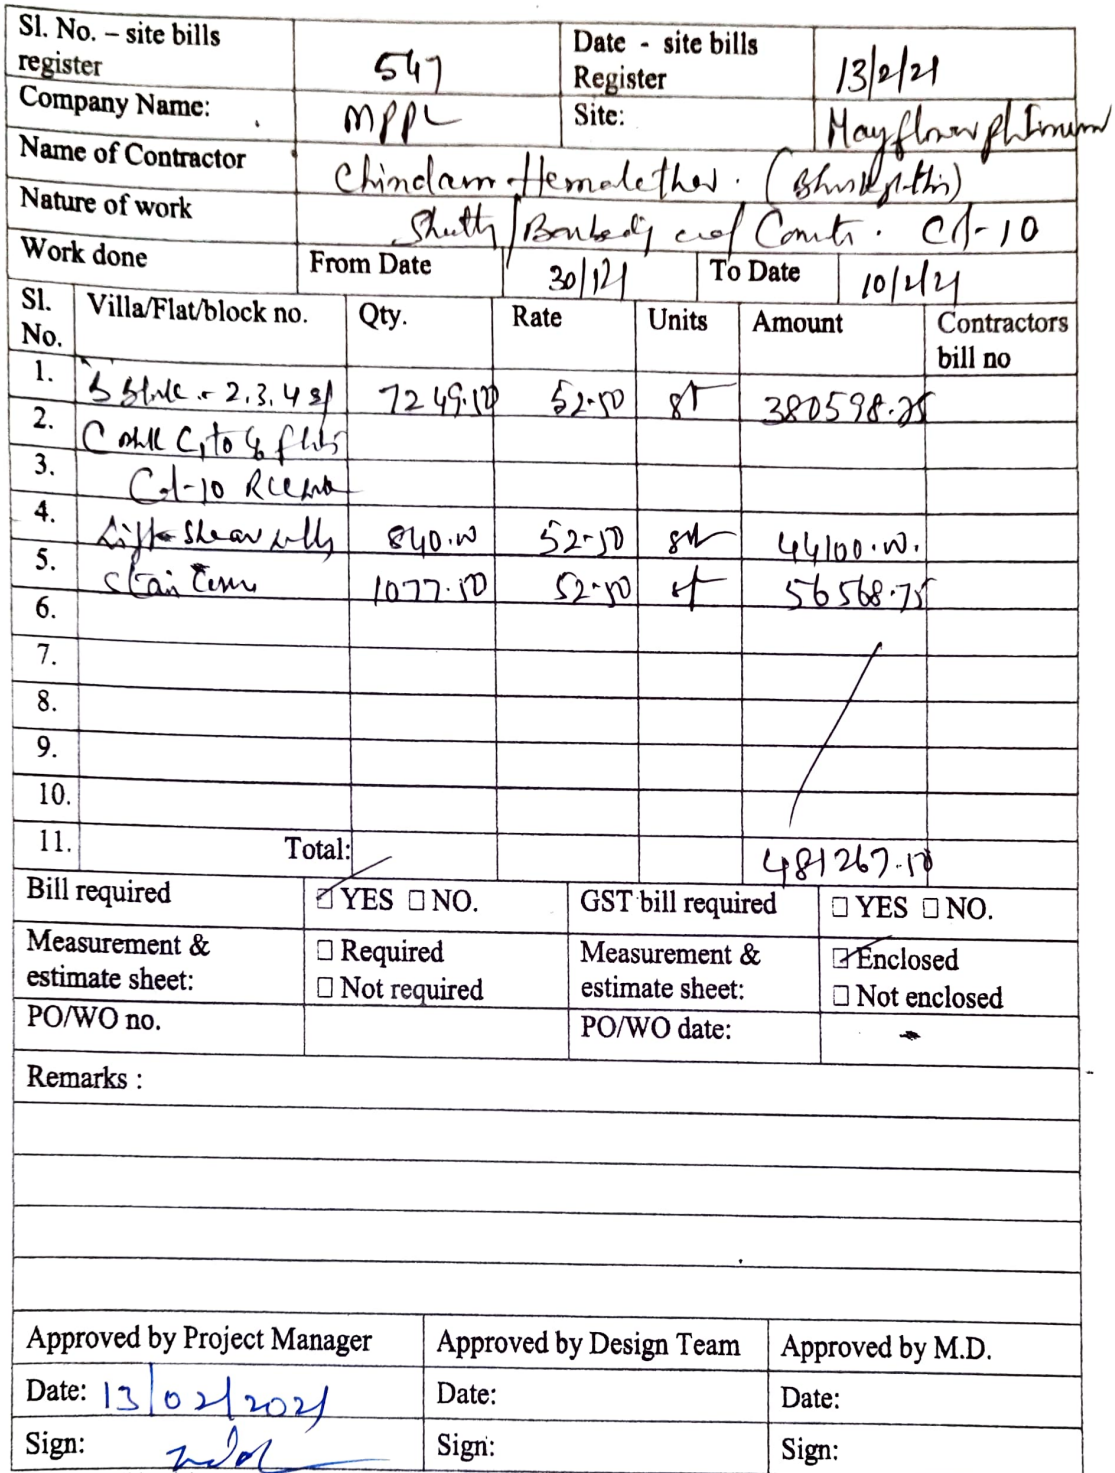 Sl. No. – site bills register 547 Date - site bills Register 13/2/21
Company Name: MPPL Site: Mayflower platinum
Name of Contractor Chindam Hemalatha. 
Nature of work C-1-10
Work done From Date 30/1/21 To Date 10/2/21
Sl. No. Villa/Flat/block no. Qty. Rate Units Amount Contractors bill no
1. 2,3,4 7249.50 52-50 sft 380598.75
2. C to
3. -10 RCC
4. Lift shear walls 840.00 52-50 sft 44100.00.
5. Stair 1077.50 52-50 sft 56568.75
6.
7.
8.
9.
10.
11. Total: 481267.50
Bill required YES NO. GST bill required YES NO.
Measurement & estimate sheet: Required Measurement & estimate sheet: Enclosed
Not required Not enclosed
PO/WO no. PO/WO date:
Remarks :
Approved by Project Manager Approved by Design Team Approved by M.D.
Date: 13/02/2021 Date: Date:
Sign: Sign: Sign: